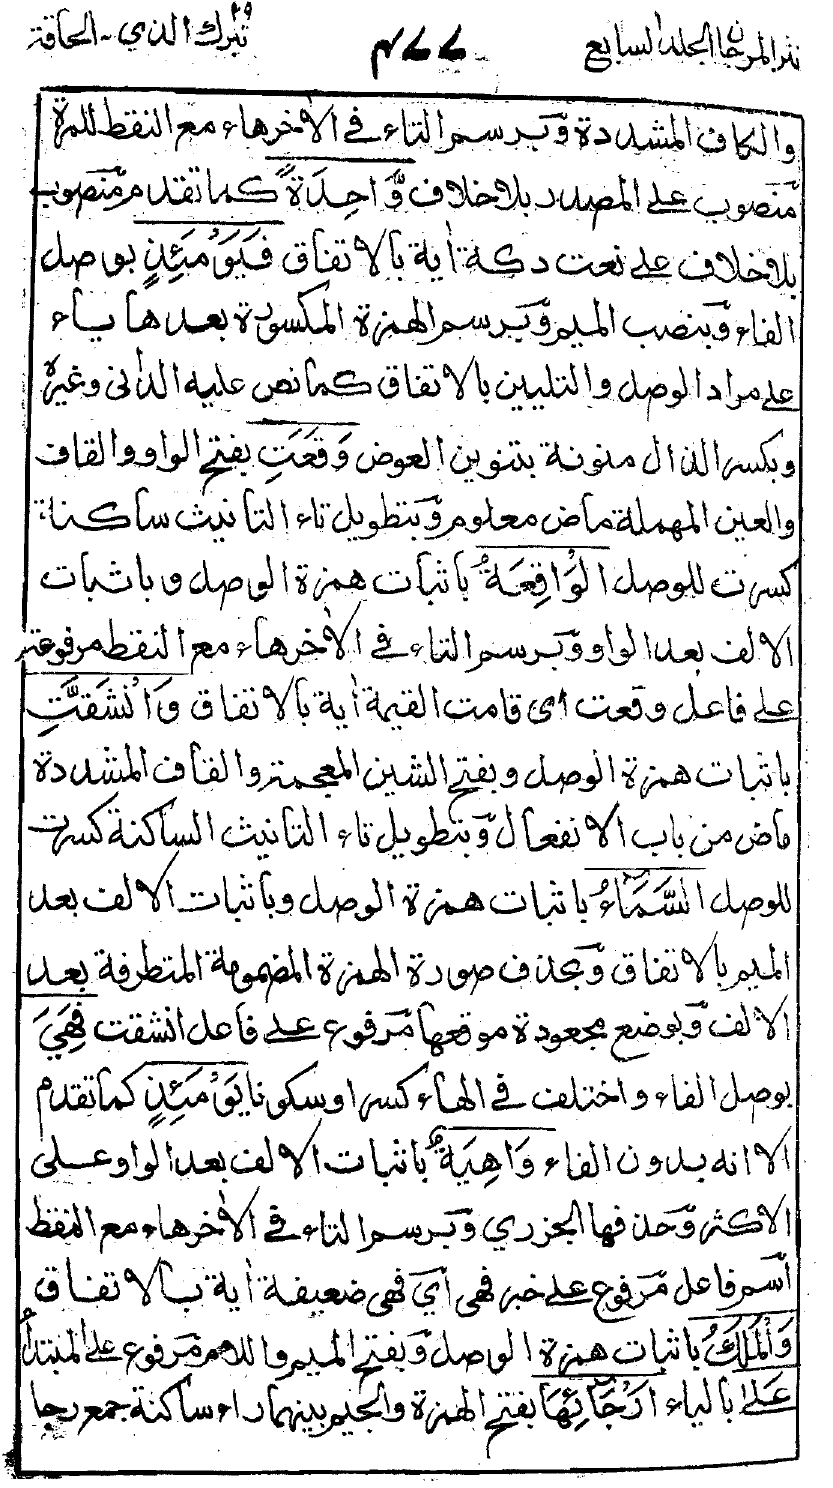 نثر المرجان الجلد السابع ٤٧٧ تبرك الذي ٢٩ - الحاقة
والكاف المشددة وّبرسم التاء في الاٰخر هاء مع النقط للمرة
مّنصوب على المصدر بلا خلاف وَّاحِدَةً كما تقدم مّنصوب
بلا خلاف على نعت دكة اٰية بالاتفاق فَيَوْمَئِذٍ بوصل
الفاء وّبنصب الميم وّبرسم الهمزة المكسورة بعدها ياء
على مراد الوصل والتليين بالاتفاق كما نص عليه الداني وغيره
وبكسر الذال منونة بتنوين العوض وَقَعَتِ بفتح الواو والقاف
والعين المهملة ماض معلوم وّبتطويل تاء التانيث ساكنة
كسرت للوصل الْوَاقِعَةُ باثبات همزة الوصل وباثبات
الالف بعد الواو وّبرسم التاء في الاٰخر هاء مع النقط مرفوعة
على فاعل وقعت اى قامت القيمة اٰية بالاتفاق وَانْشَقَّتِ
باثبات همزة الوصل وبفتح الشين المعجمة والقاف المشددة
ماض من باب الانفعال وّبتطويل تاء التانيث الساكنة كسرت
للوصل السَّمَاءُ باثبات همزة الوصل وباثبات الالف بعد
الميم بالاتفاق وّبحذف صورة الهمزة المضمومة المتطرفة بعد
الالف وّبوضع مجعودة موقعها مّرفوع على فاعل انشقت فَهِيَ
بوصل الفاء واختلف في الهاء كسرا وسكونا يَوْمَئِذٍ كما تقدم
الا انه بدون الفاء وَاهِيَةٌ باثبات الالف بعد الواو على
الاكثر وّحذفها الجزري وّبرسم التاء في الاٰخر هاء مع النقط
اسم فاعل مّرفوع على خبر فهى اي فهى ضعيفة اٰية بالاتفاق
وَالْمَلَكُ باثبات همزة الوصل وّبفتح الميم واللام مّرفوع على المبتدأ
عَلٰى بالياء اَرْجَائِهَا بفتح الهمزة والجيم بينهما راء ساكنة جمع رجا